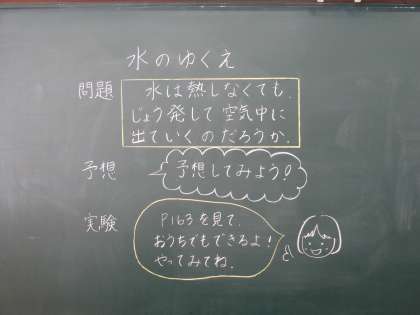 水のゆくえ
問題
水は熱しなくても、
じょう発して空気中に
出ていくのだろうか。
予想
予想してみよう!
実験
P163を見て、
おうちでもできるよ!
やってみてね。